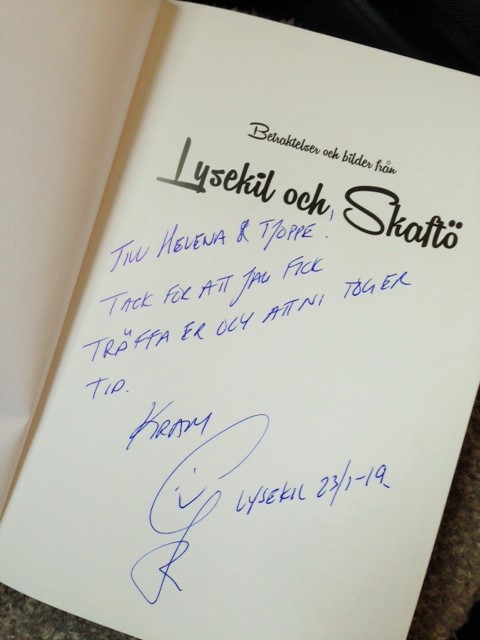 Betraktelser och bilder från
Lysekil och Skaftö
TILL HELENA & TJOPPE!
TACK FÖR ATT JAG FICK
TRÄFFA ER OCH ATT NI TOG ER
TID.
KRAM
LYSEKIL 23/1-19